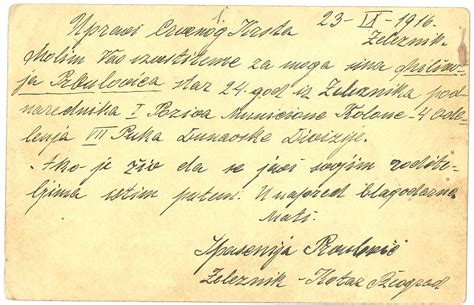 1.
Upravi Crvenog Krsta 23-IX-1916.
Železnik.
Molim Vas izvestite me za moga sina
star 24 god. iz Železnika pod-
narednika I Poziva Municione Kolone - 4 Ode-
lenja VII Puka Dunavske Divizije.
- Ako je živ da se javi svojim rodite-
ljima istim putem. U napred blagodarna
Mati.
Spasenija
Železnik - Kotar Beograd